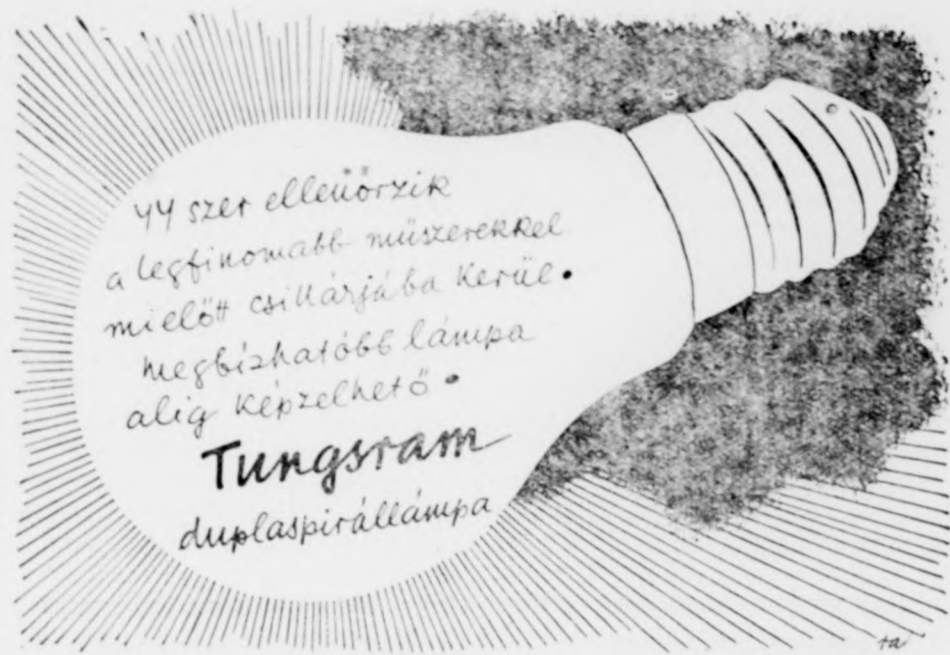 44 szer ellenőrzik
a legfinomabb műszerekkel
mielőtt csillárjába kerül.
megbízhatóbb lámpa
alig képzelhető.
Tungsram
duplaspirállámpa
ta